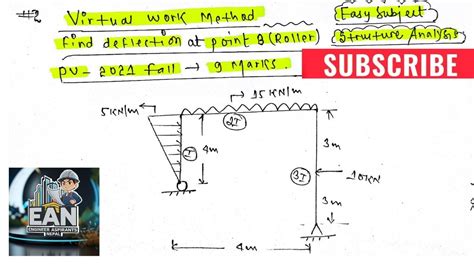 #2 Virtual Work Method (Easy Subject
Find deflection at point B (Roller) Structure Analysis
PU - 2021 fall → 9 Marks.
SUBSCRIBE
→ 15 KN/m
5KN/m
2I
I
4m
3m
3I
10KN
3m
4m
EAN
ENGINEER ASPIRANTS
NEPAL